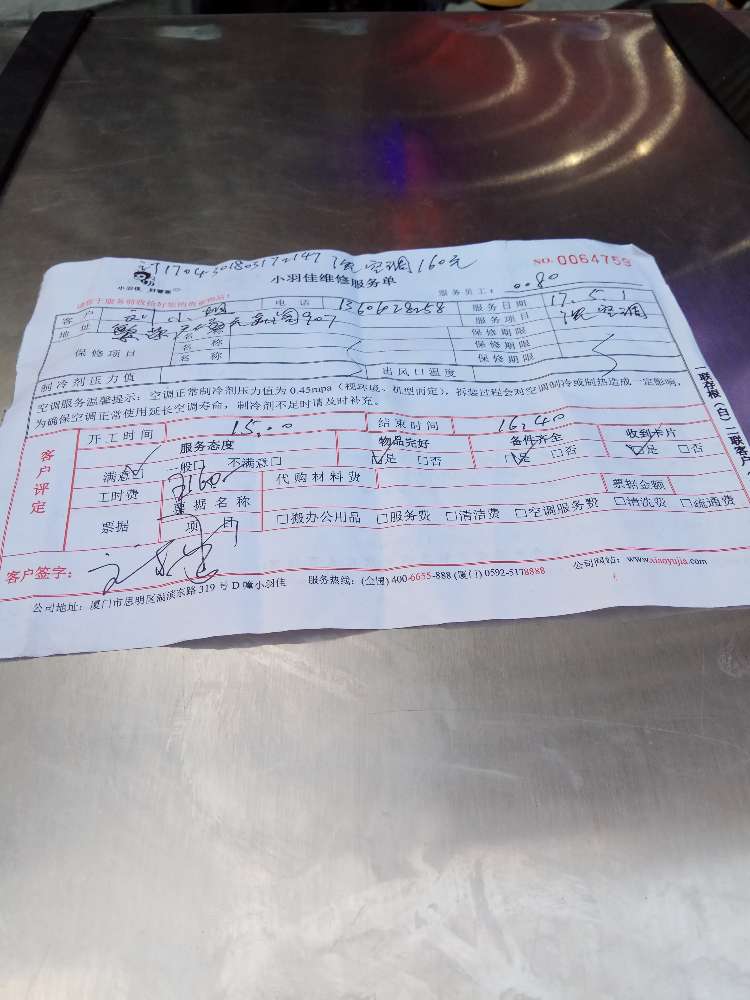 1704301803172147 洗空调160元
小羽佳 好管家
小羽佳维修服务单
NO. 0064759
服务员工: 0080
客户 小 电话 13606028258 服务日期 17.5.1
地址 907 服务项目 洗空调
保修项目 名称 保修期限
名称 保修期限
名称 保修期限
制冷剂压力值 出风口温度
空调服务温馨提示:空调正常制冷剂压力值为0.45mpa(视环境、机型而定),拆装过程会对空调制冷或制热造成一定影响,
为确保空调正常使用延长空调寿命,制冷剂不足时请及时补充。
客户评定
开工时间 15.00 结束时间 16.40
服务态度 物品完好 备件齐全 收到卡片
满意□ 一般□ 不满意□ □是 □否 □是 □否 □是 □否
工时费 160 代购材料费
票据名称 票据金额
票据 项目 □搬办公用品 □服务费 □清洁费 □空调服务费 □清洗费 □疏通费
客户签字:
公司地址:厦门市思明区湖滨东路319号D幢小羽佳 服务热线:(全国) 400-6655-888 (厦门) 0592-5178888 公司网站: www.xiaoyujia.com
一联存根(白)二联客户